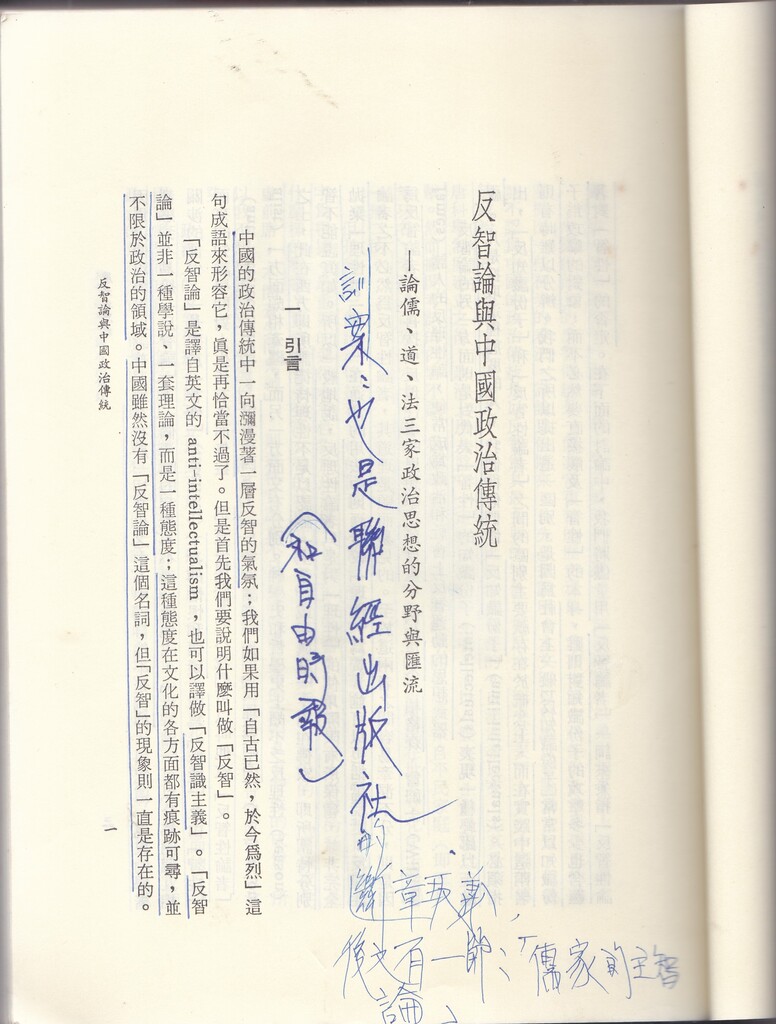 反智論與中國政治傳統
—論儒、道、法三家政治思想的分野與匯流
訓案：也是聯經出版社的
斷章取義，
後文有一節：「儒家的主智
論」
（和自由時報）
一 引言
中國的政治傳統中一向瀰漫著一層反智的氣氛；我們如果用「自古已然，於今爲烈」這
句成語來形容它，眞是再恰當不過了。但是首先我們要說明什麼叫做「反智」。
「反智論」是譯自英文的 anti-intellectualism，也可以譯做「反智識主義」。「反智
論」並非一種學說、一套理論，而是一種態度；這種態度在文化的各方面都有痕跡可尋，並
不限於政治的領域。中國雖然沒有「反智論」這個名詞，但「反智」的現象則一直是存在的。
反智論與中國政治傳統
一